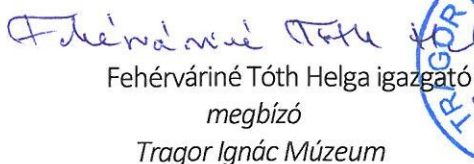 Fehérváriné Tóth
Fehérváriné Tóth Helga igazgató
megbízó
Tragor Ignác Múzeum
TRAGOR